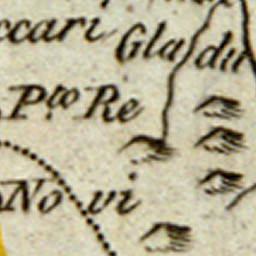 ccari Gladu
P.to Re
No vi